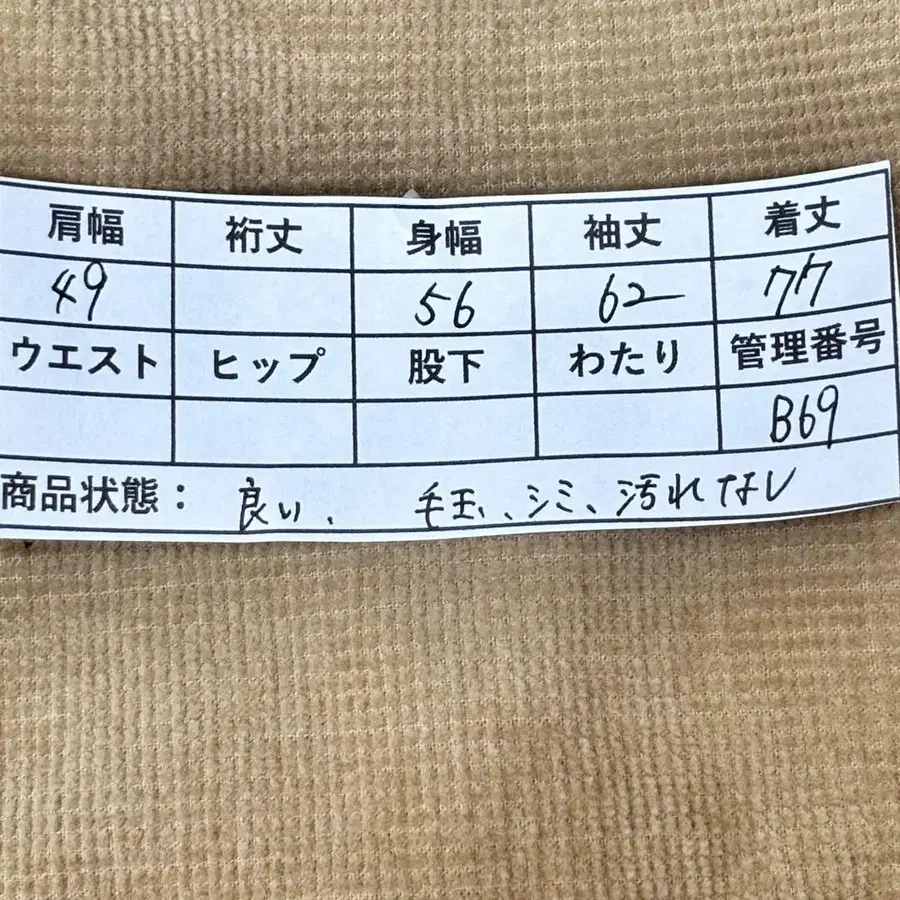 肩幅 裄丈 身幅 袖丈 着丈
49 56 62 77
ウエスト ヒップ 股下 わたり 管理番号
B69
商品状態: 良い、 毛玉、シミ、汚れなし